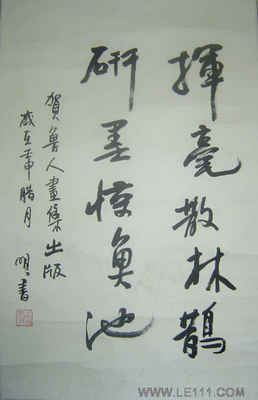 揮毫散林鵲
研墨惊魚池
賀魯人畫集出版
歲在壬申腊月 明書
WWW.LE111.COM